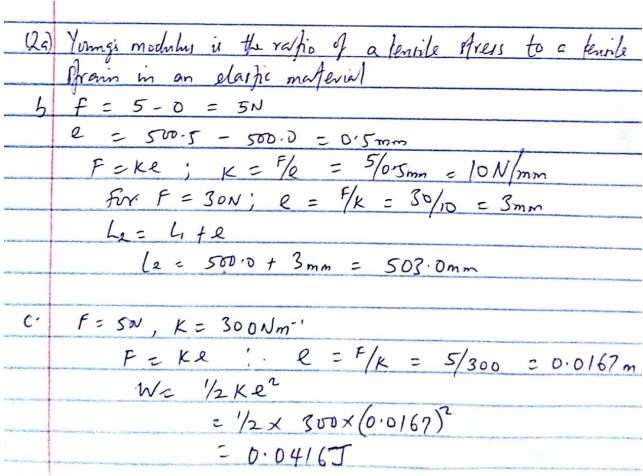 Q2a) Young's modulus is the ratio of a tensile stress to a tensile
strain in an elastic material
b f = 5 - 0 = 5N
e = 500.5 - 500.0 = 0.5mm
F = Ke ; K = F/e = 5/0.5mm = 10 N/mm
for F = 30N; e = F/K = 30/10 = 3mm
L2 = L1 + e
L2 = 500.0 + 3mm = 503.0mm
c. F = 5N, K = 300Nm⁻¹
F = Ke ∴ e = F/K = 5/300 = 0.0167m
W = 1/2 Ke²
= 1/2 x 300 x (0.0167)²
= 0.0416J